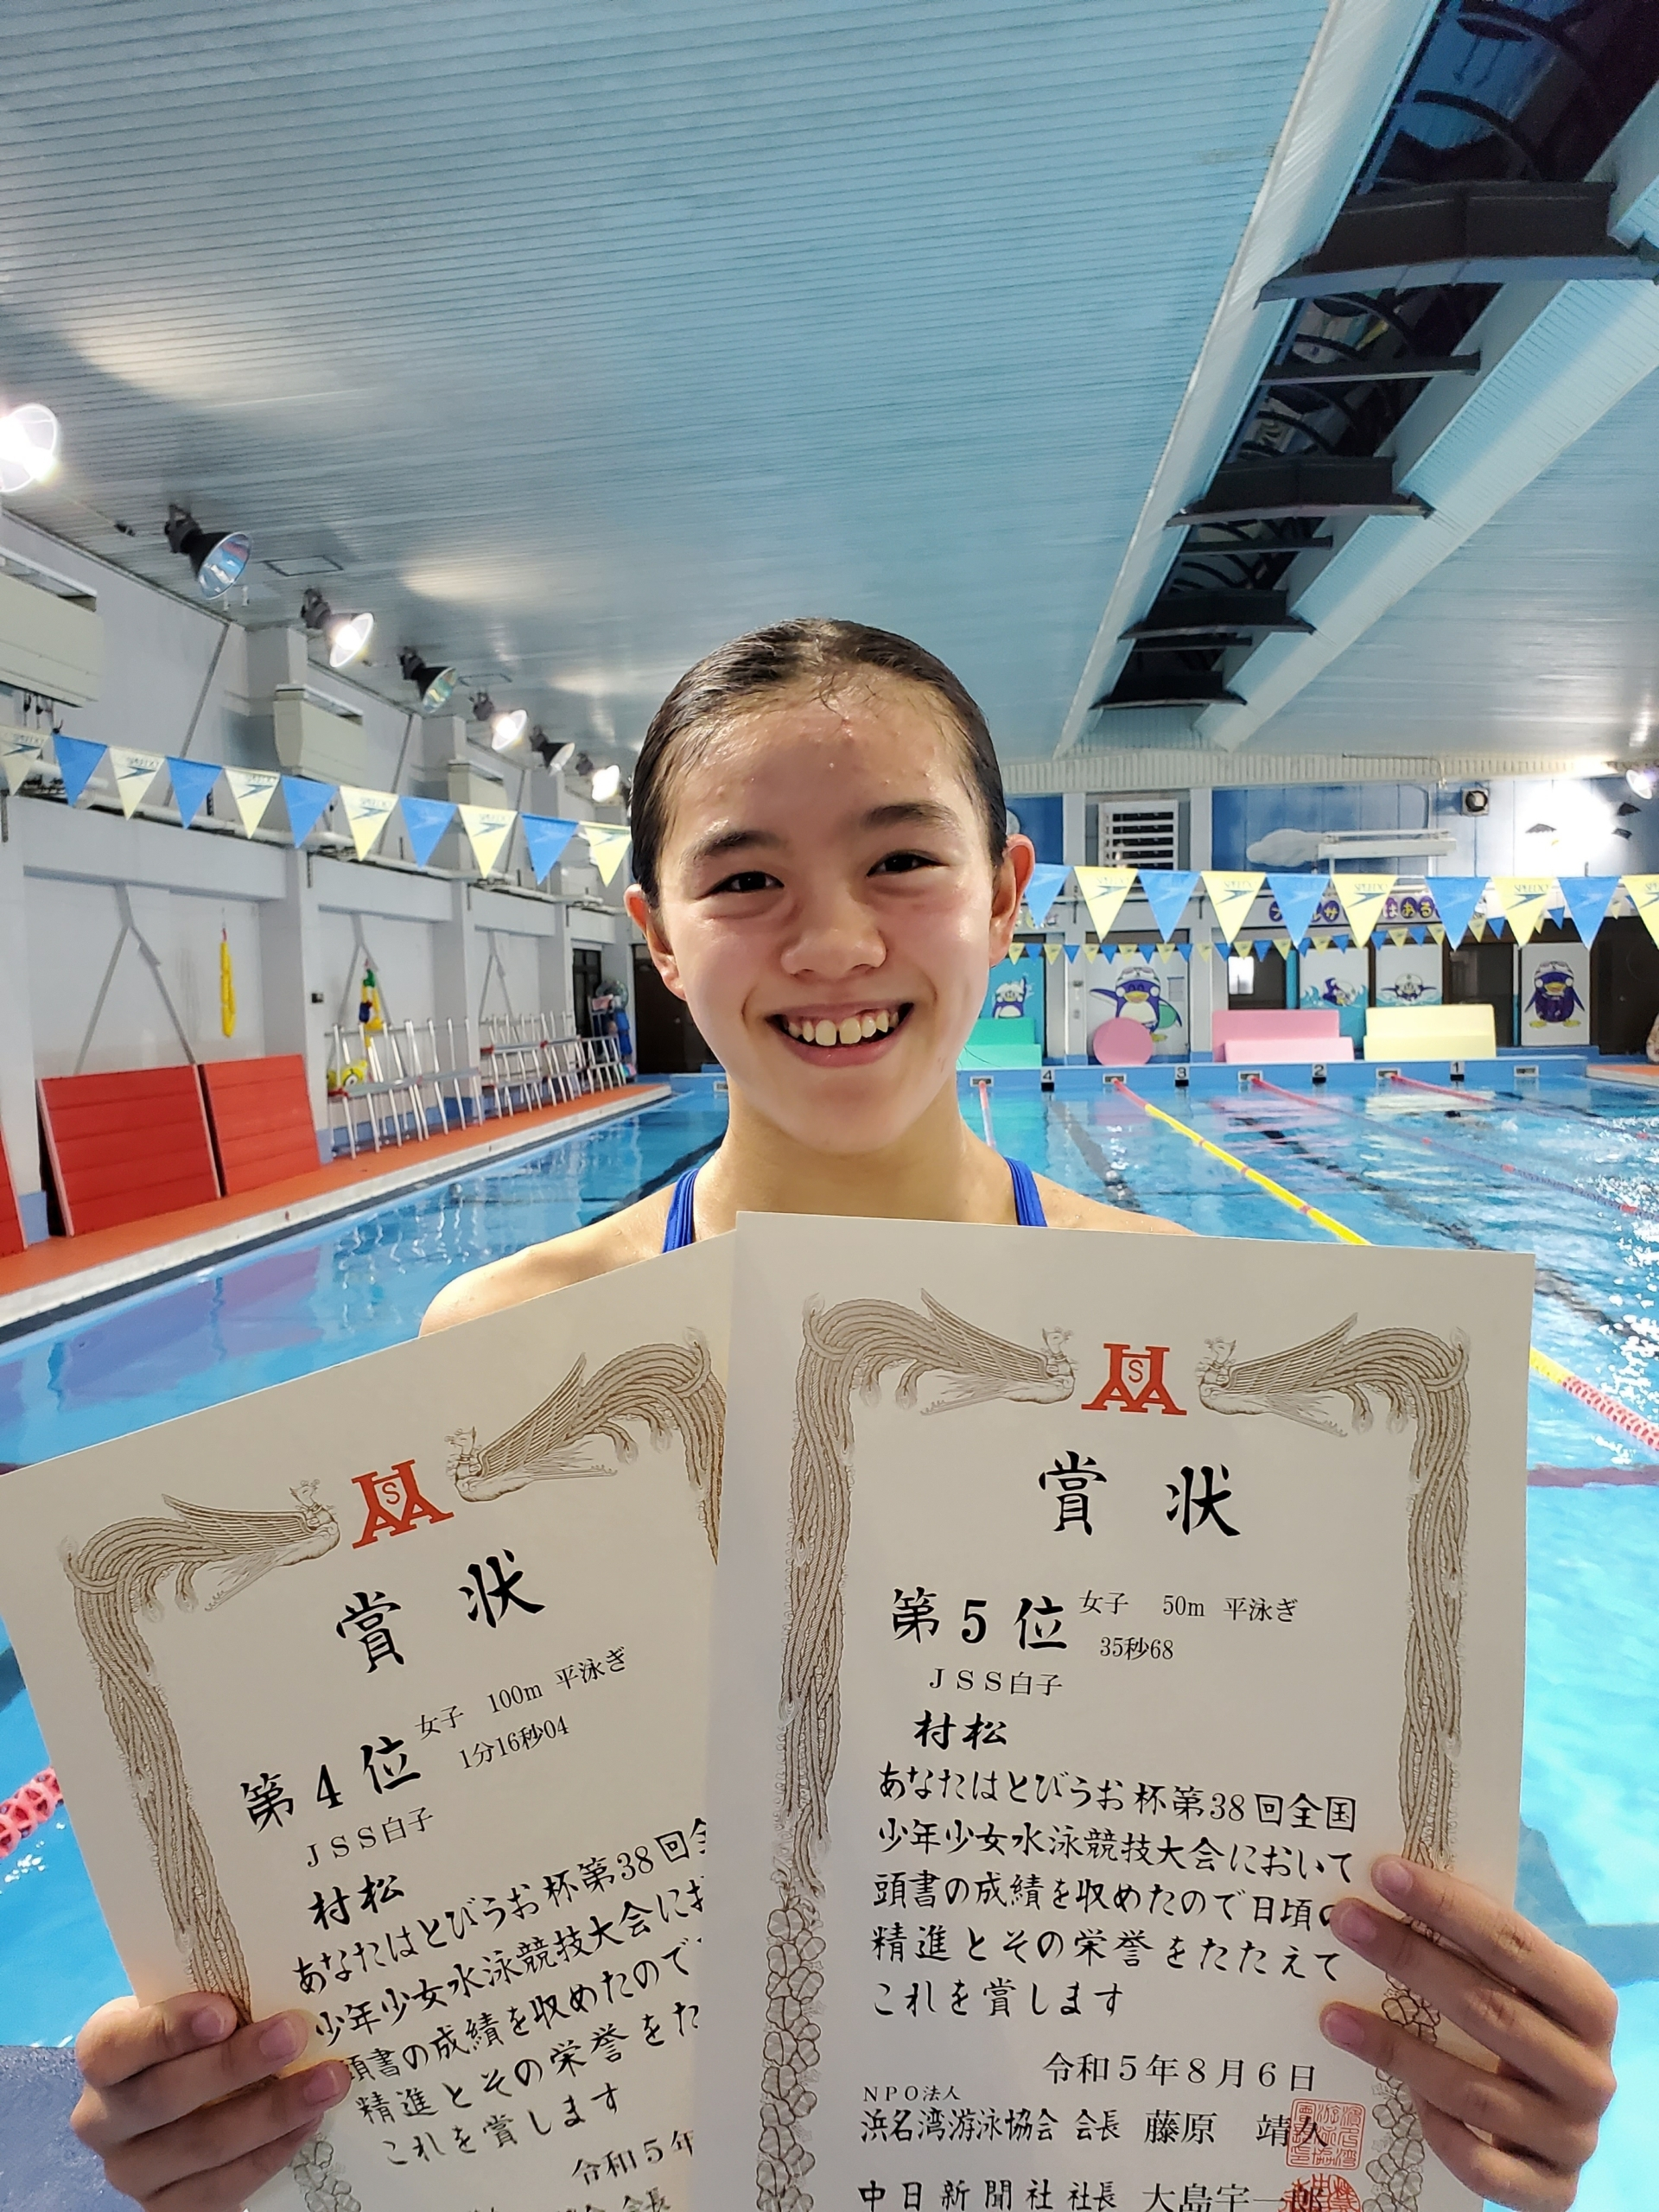 SPEEDO
SPEEDO
4
3
2
1
HSAA
賞状
第4位 女子 100m 平泳ぎ
1分16秒04
JSS白子
村松
あなたはとびうお杯第38回全
少年少女水泳競技大会にお
頭書の成績を収めたので
精進とその栄誉をた
これを賞します
令和5年
会長
賞状
第5位 女子 50m 平泳ぎ
35秒68
JSS白子
村松
あなたはとびうお杯第38回全国
少年少女水泳競技大会において
頭書の成績を収めたので日頃の
精進とその栄誉をたたえて
これを賞します
令和5年8月6日
NPO法人
浜名湾游泳協会 会長 藤原 靖久
中日新聞社社長 大島宇一郎